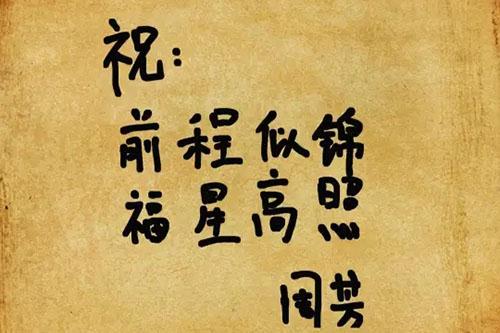 祝：
前程似锦
福星高照
周芳